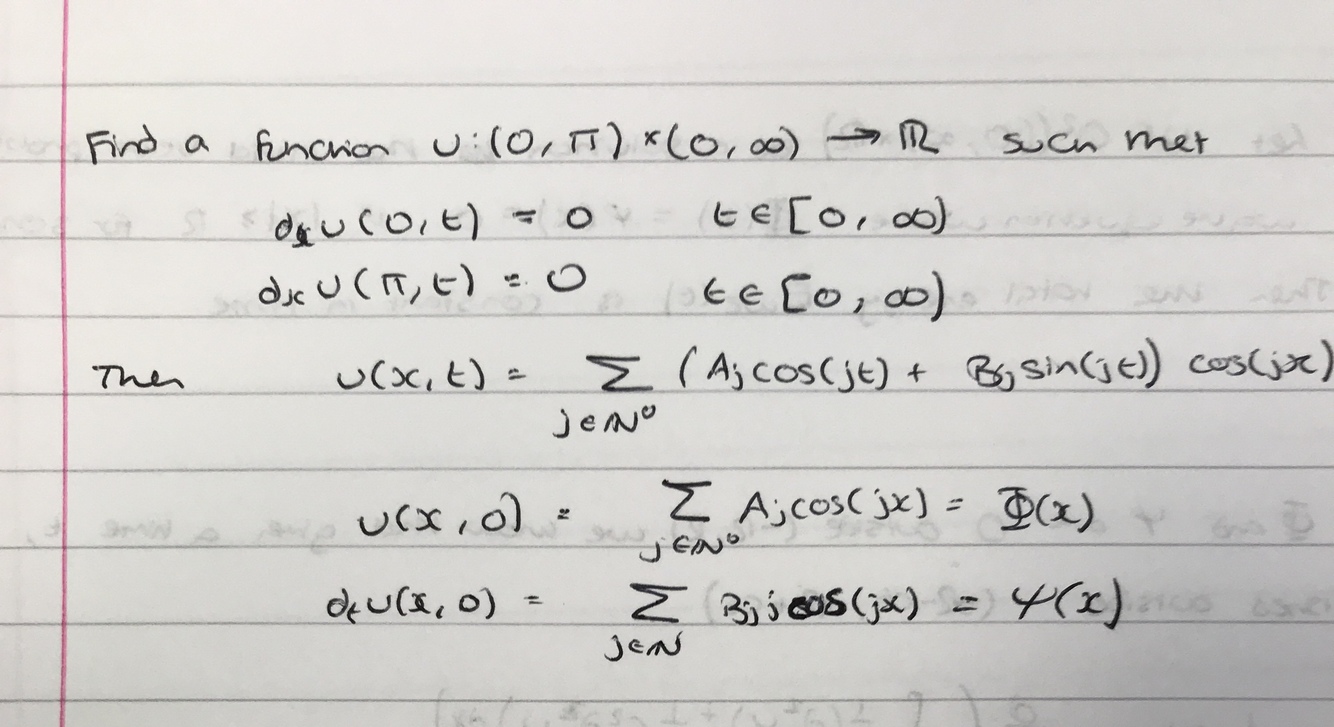 Find a function u:(0,π)×(0,∞) → ℝ such that
∂ₓu(0,t) = 0 t∈[0,∞)
∂ₓu(π,t) = 0 t∈[0,∞)
Then u(x,t) = Σ_{j∈ℕ⁰} (Aⱼcos(jt) + Bⱼsin(jt)) cos(jx)
u(x,0) = Σ_{j∈ℕ⁰} Aⱼcos(jx) = Φ(x)
∂ₜu(x,0) = Σ_{j∈ℕ} Bⱼjcos(jx) = Ψ(x)